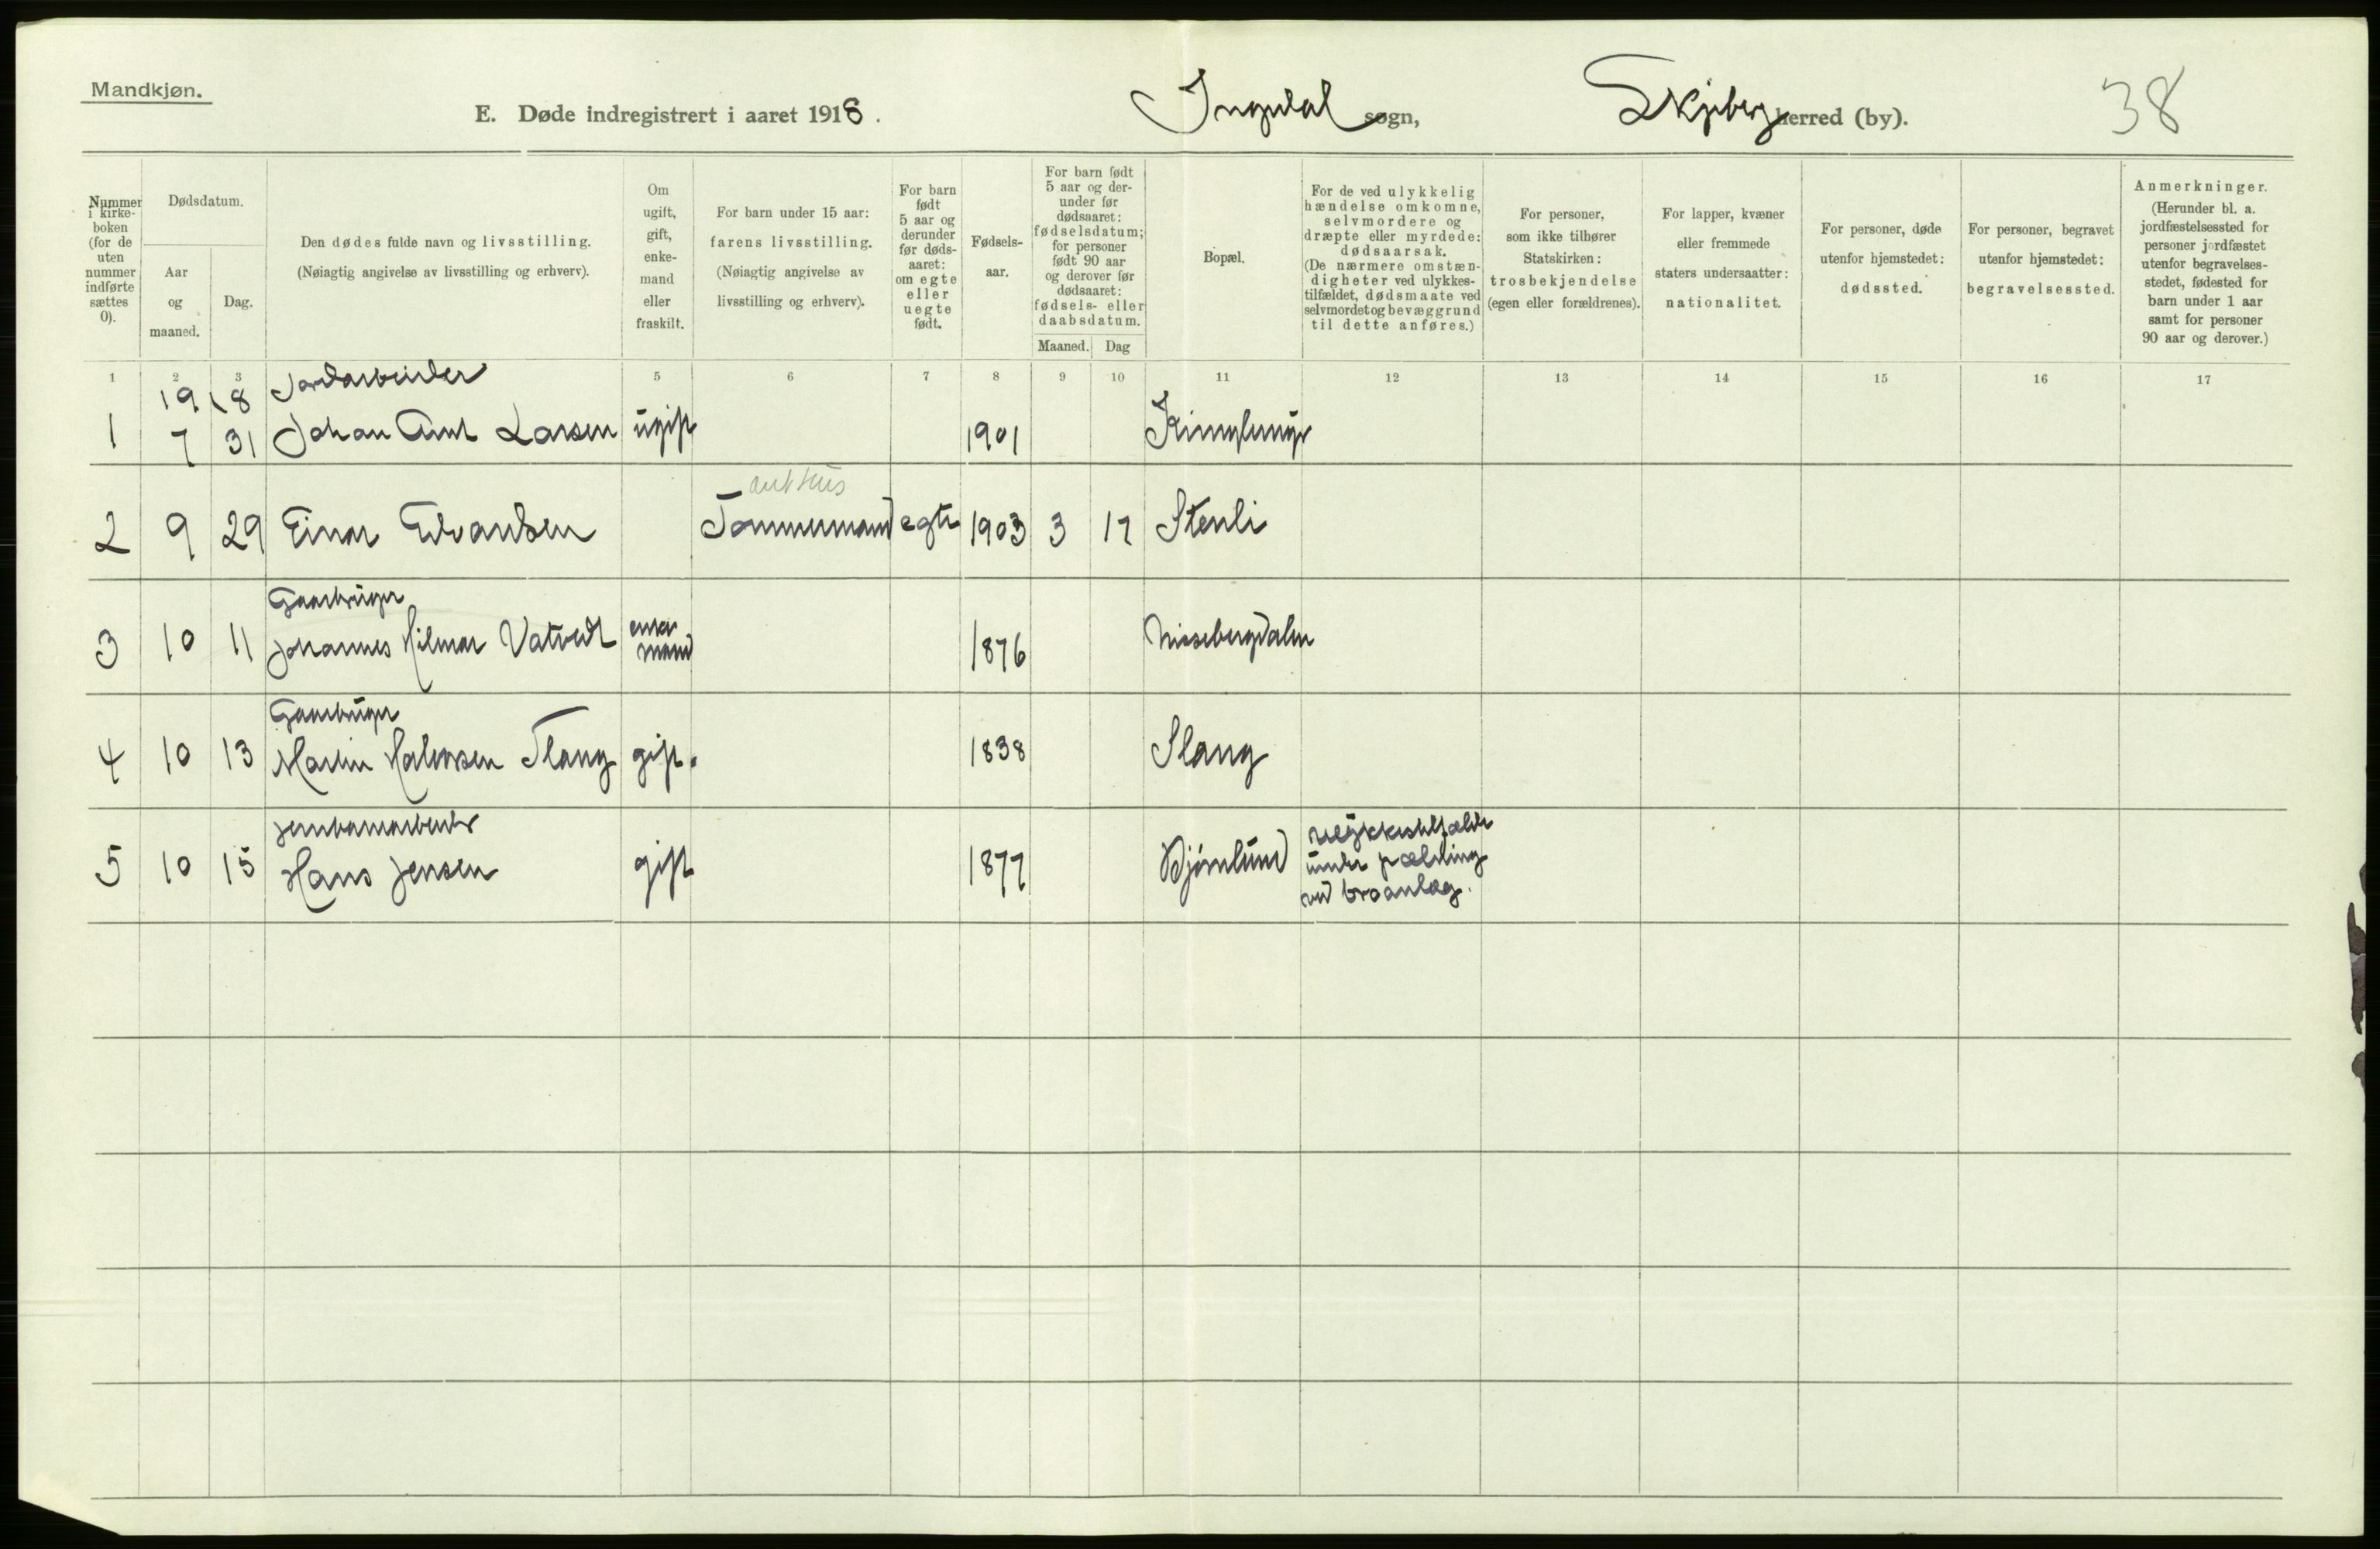 Mandkjøn.
E. Døde indregistrert i aaret 1918.
Ingedal sogn,
Skjeberg herred (by).
38
Nummer i kirkeboken (for de uten nummer indførte sættes 0).
Dødsdatum.
Aar og maaned.
Dag.
Den dødes fulde navn og livsstilling.
(Nøiagtig angivelse av livsstilling og erhverv).
Om ugift, gift, enkemand eller fraskilt.
For barn under 15 aar: farens livsstilling.
(Nøiagtig angivelse av livsstilling og erhverv).
For barn født 5 aar og derunder før dødsaaret: om egte eller uegte født.
Fødselsaar.
For barn født 5 aar og derunder før dødsaaret: fødselsdatum; for personer født 90 aar og derover før dødsaaret: fødsels- eller daabsdatum.
Maaned.
Dag
Bopæl.
For de ved ulykkelig hændelse omkomne, selvmordere og dræpte eller myrdede: dødsaarsak.
(De nærmere omstændigheter ved ulykkestilfældet, dødsmaate ved selvmordet og bevæggrund til dette anføres.)
For personer, som ikke tilhører Statskirken: trosbekjendelse (egen eller forældrenes).
For lapper, kvæner eller fremmede staters undersaatter: nationalitet.
For personer, døde utenfor hjemstedet: dødssted.
For personer, begravet utenfor hjemstedet: begravelsessted.
Anmerkninger.
(Herunder bl. a. jordfæstelsessted for personer jordfæstet utenfor begravelsesstedet, fødested for barn under 1 aar samt for personer 90 aar og derover.)
1 2 3 5 6 7 8 9 10 11 12 13 14 15 16 17
1918 Jordarbeider
1 7 31 Johan Larsen ugift 1901
2 9 29 Einar Edvardsen Tømmermand egte 1903 3 17 Stenli
Gaarbruger
3 10 11 Johannes Hilmar Vatvedt enkemand 1876 Nissebergdalen
Gaarbruger
4 10 13 Martin Halvorsen Slang gift. 1838 Slang
Jernbanearbeider
5 10 15 Hans Jensen gift 1877 Bjørnlund ulykkestilfælde
under pæleling
ved broanlæg.